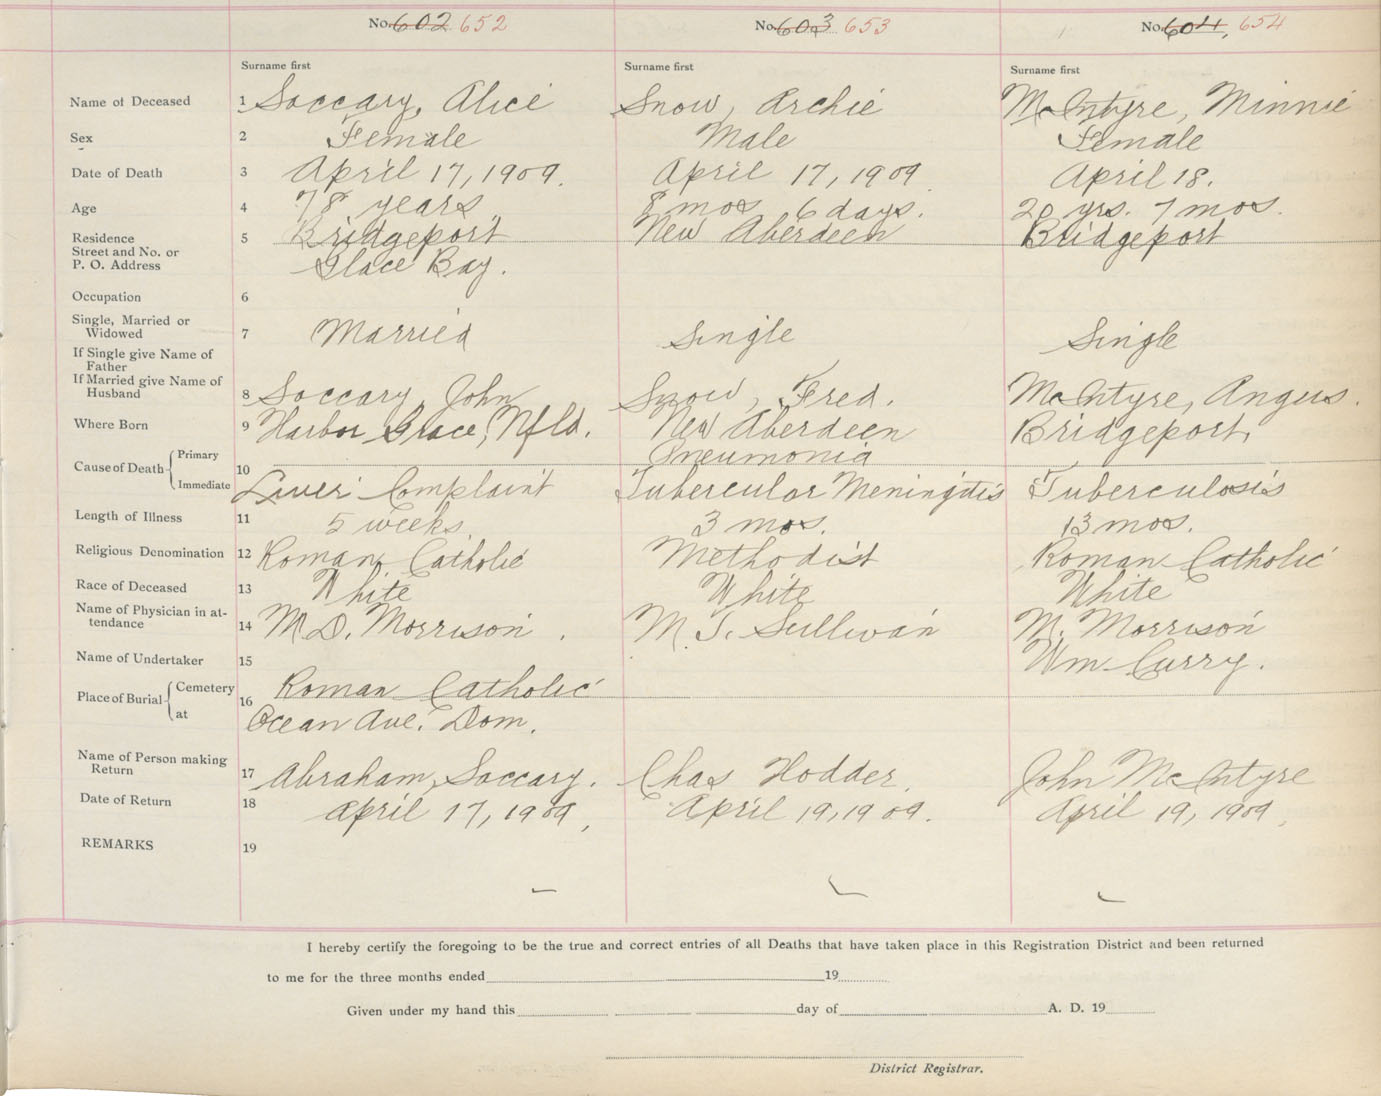 No. 602 652 No. 603 653 No. 604, 654
Surname first Surname first Surname first
Name of Deceased 1 Soccary, Alice Snow, Archie McIntyre, Minnie
Sex 2 Female Male Female
Date of Death 3 April 17, 1909. April 17, 1909. April 18.
Age 4 78 years 8 mos 6 days. 20 yrs. 7 mos.
Residence 5 Bridgeport New Aberdeen Bridgeport
Street and No. or
P. O. Address Glace Bay.
Occupation 6
Single, Married or
Widowed 7 Married Single Single
If Single give Name of
Father
If Married give Name of
Husband 8 Soccary, John Snow, Fred. McIntyre, Angus.
Where Born 9 Harbor Grace, Nfld. New Aberdeen Bridgeport.
Primary Pneumonia
Cause of Death 10
Immediate Liver Complaint Tubercular Meningitis Tuberculosis
Length of Illness 11 5 weeks. 3 mos. 13 mos.
Religious Denomination 12 Roman Catholic Methodist Roman Catholic
Race of Deceased 13 White White White
Name of Physician in at-
tendance 14 M D. Morrison. M. T. Sullivan M. Morrison
Name of Undertaker 15 Wm Curry.
Cemetery Roman Catholic
Place of Burial 16
at Ocean Ave. Dom.
Name of Person making
Return 17 Abraham Soccary. Chas Hodder. John McIntyre
Date of Return 18 April 17, 1909, April 19, 1909. April 19, 1909,
REMARKS 19
I hereby certify the foregoing to be the true and correct entries of all Deaths that have taken place in this Registration District and been returned
to me for the three months ended 19
Given under my hand this day of A. D. 19
District Registrar.